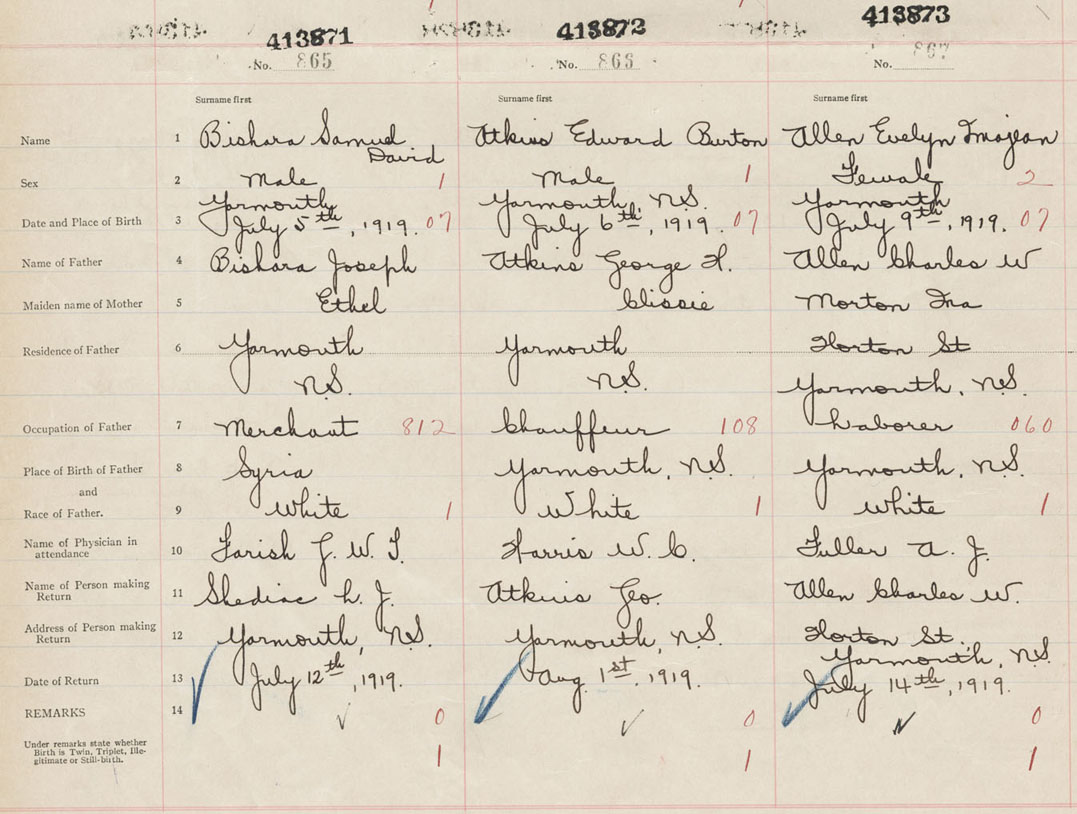 413871 413872 413873
No. 865 No. 866 No. 867
Surname first Surname first Surname first
Name 1 Bishara Samuel Atkins Edward Burton Allen Evelyn Imajean
David
Sex 2 Male 1 Male 1 Female 2
Yarmouth Yarmouth, N.S. Yarmouth
Date and Place of Birth 3 July 5th, 1919. 07 July 6th, 1919. 07 July 9th, 1919. 07
Name of Father 4 Bishara Joseph Atkins George H. Allen Charles W
Maiden name of Mother 5 Ethel Clissie Morton Ina
Residence of Father 6 Yarmouth Yarmouth Horton St
N.S. N.S. Yarmouth, N.S.
Occupation of Father 7 Merchant 812 Chauffeur 108 Laborer 060
Place of Birth of Father 8 Syria Yarmouth, N.S. Yarmouth, N.S.
and
Race of Father. 9 White 1 White 1 White 1
Name of Physician in
attendance 10 Farish G. W. T. Harris W. C. Fuller A. J.
Name of Person making
Return 11 Shediac L. J. Atkins Geo. Allen Charles W.
Address of Person making
Return 12 Yarmouth, N.S. Yarmouth, N.S. Horton St.
Yarmouth, N.S.
Date of Return 13 July 12th, 1919. Aug. 1st, 1919. July 14th, 1919.
REMARKS 14 0 0 0
Under remarks state whether
Birth is Twin, Triplet, Ille-
gitimate or Still-birth. 1 1 1